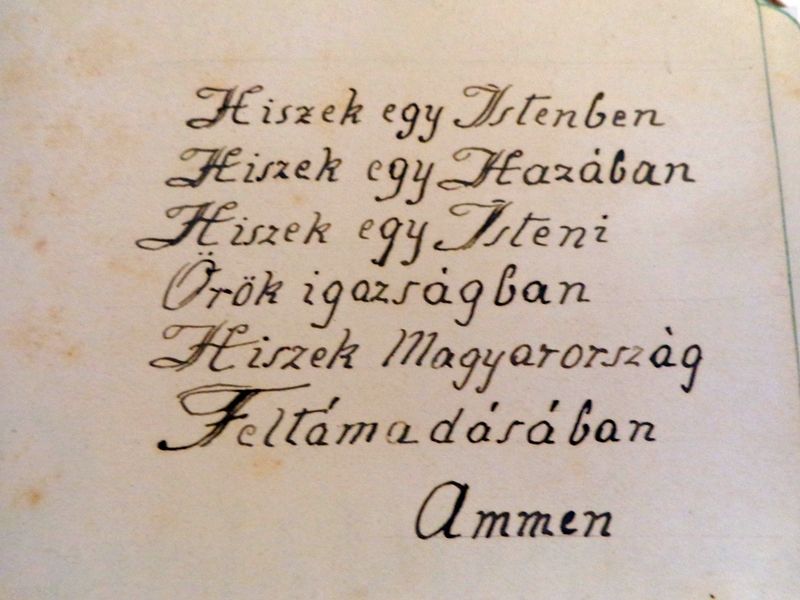 Hiszek egy Istenben
Hiszek egy Hazában
Hiszek egy Isteni
Örök igazságban
Hiszek Magyarország
Feltámadásában
Ammen